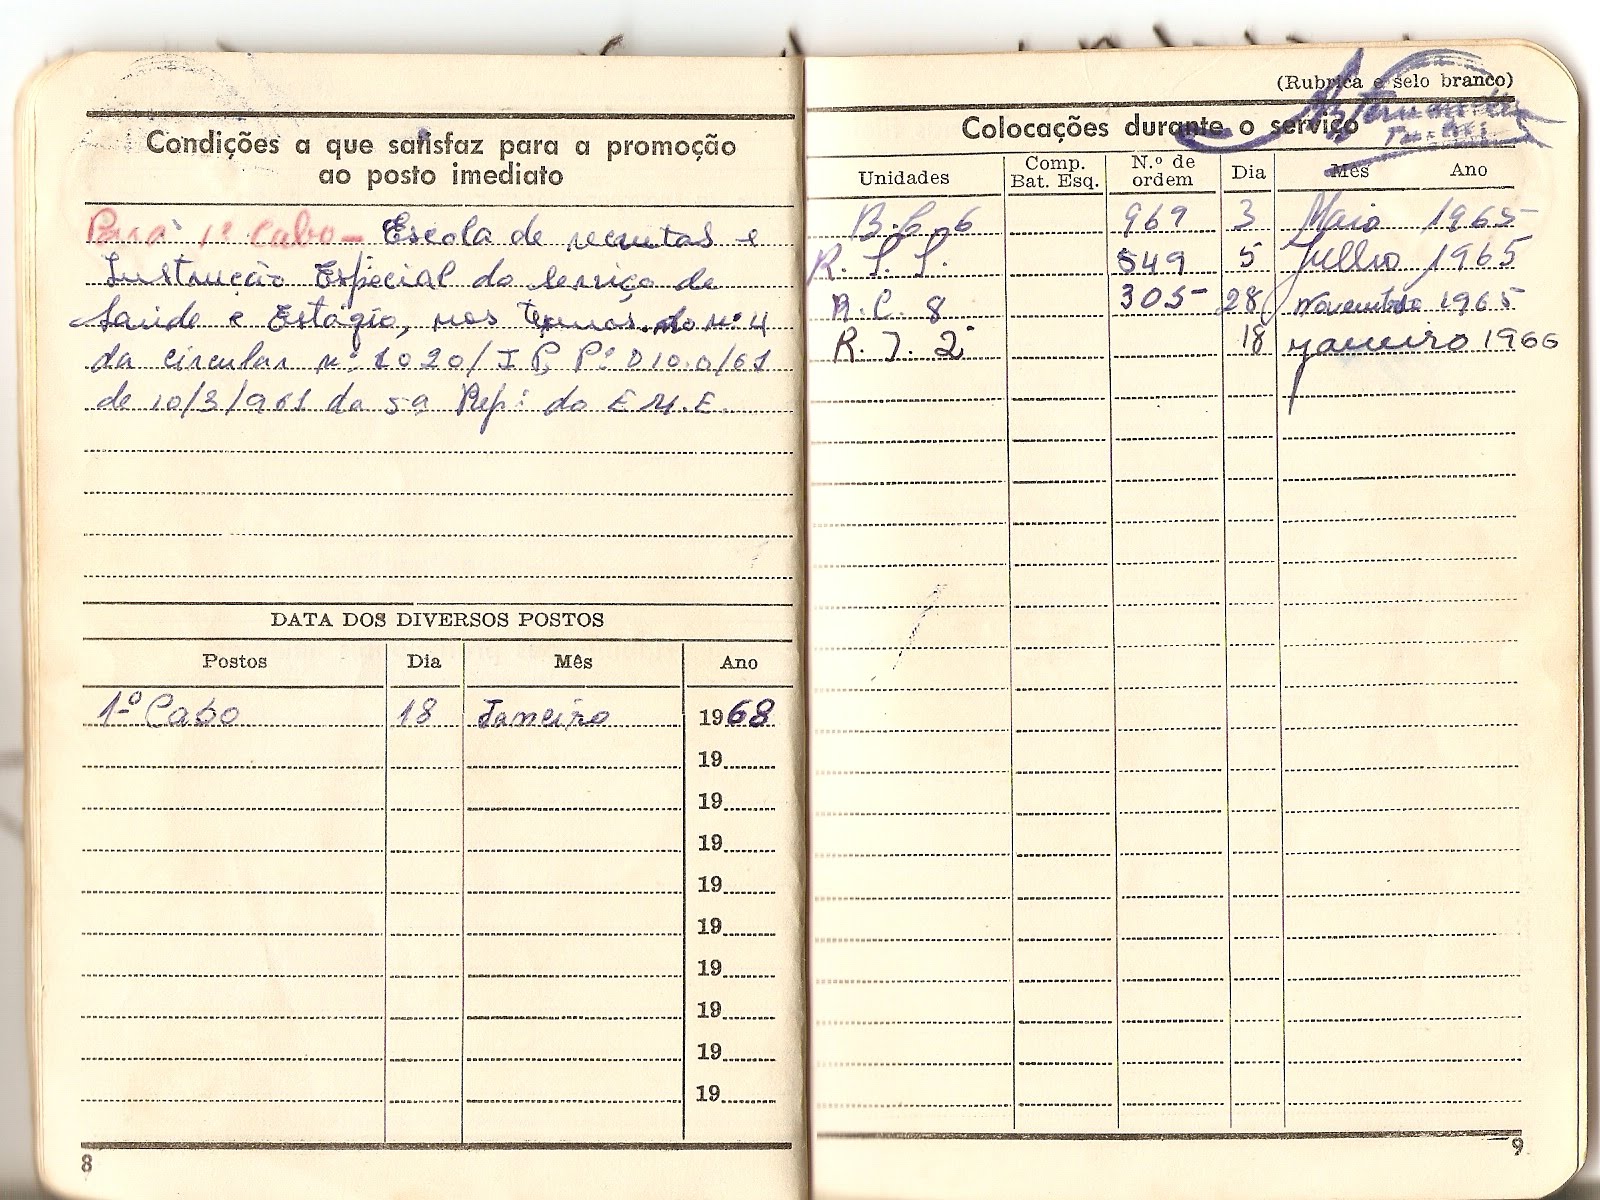 Condições a que satisfaz para a promoção
ao posto imediato
Para 1º Cabo - Escola de recrutas e
Instrução Especial do serviço de
Saúde e Estágio, nos termos do nº 4
da circular nº 1020/I P, Pº 010.0/61
de 10/3/961 da 5ª Repº do E.M.E.
DATA DOS DIVERSOS POSTOS
Postos Dia Mês Ano
1º Cabo 18 Janeiro 1968
19
19
19
19
19
19
19
19
19
8
(Rubrica e selo branco)
Colocações durante o serviço
Unidades Comp. Bat. Esq. N.º de ordem Dia Mês Ano
B.C.6 969 3 Maio 1965
R. S. S. 549 5 Julho 1965
R.C. 8 305 28 Novembro 1965
R.I. 2 18 Janeiro 1966
9